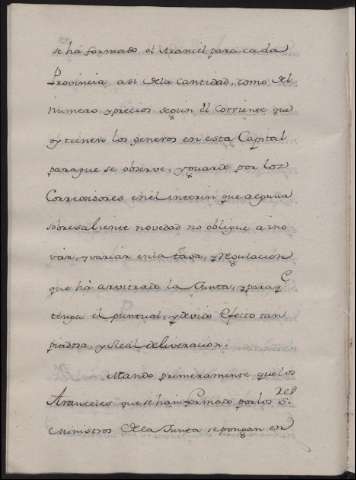 se há formado el Arancel para cada
Provincia asi dela Cantidad, como del
numero, y precios segun el Corriente que
oy tienen los generos en esta Capital
para que se observe, y guarde por los
Corregidores en el interin que alguna
sobresaliente novedad no obligue a inno
var, y variar en la tasa, y regulacion
que há arvitrado la Junta, y para q
tenga el puntual, y devido efecto tan
piadosa, y Real deliveracion.
Mando primeramente que los
Aranceles que se han formado por los S.res
Ministros dela Junta se pongan en